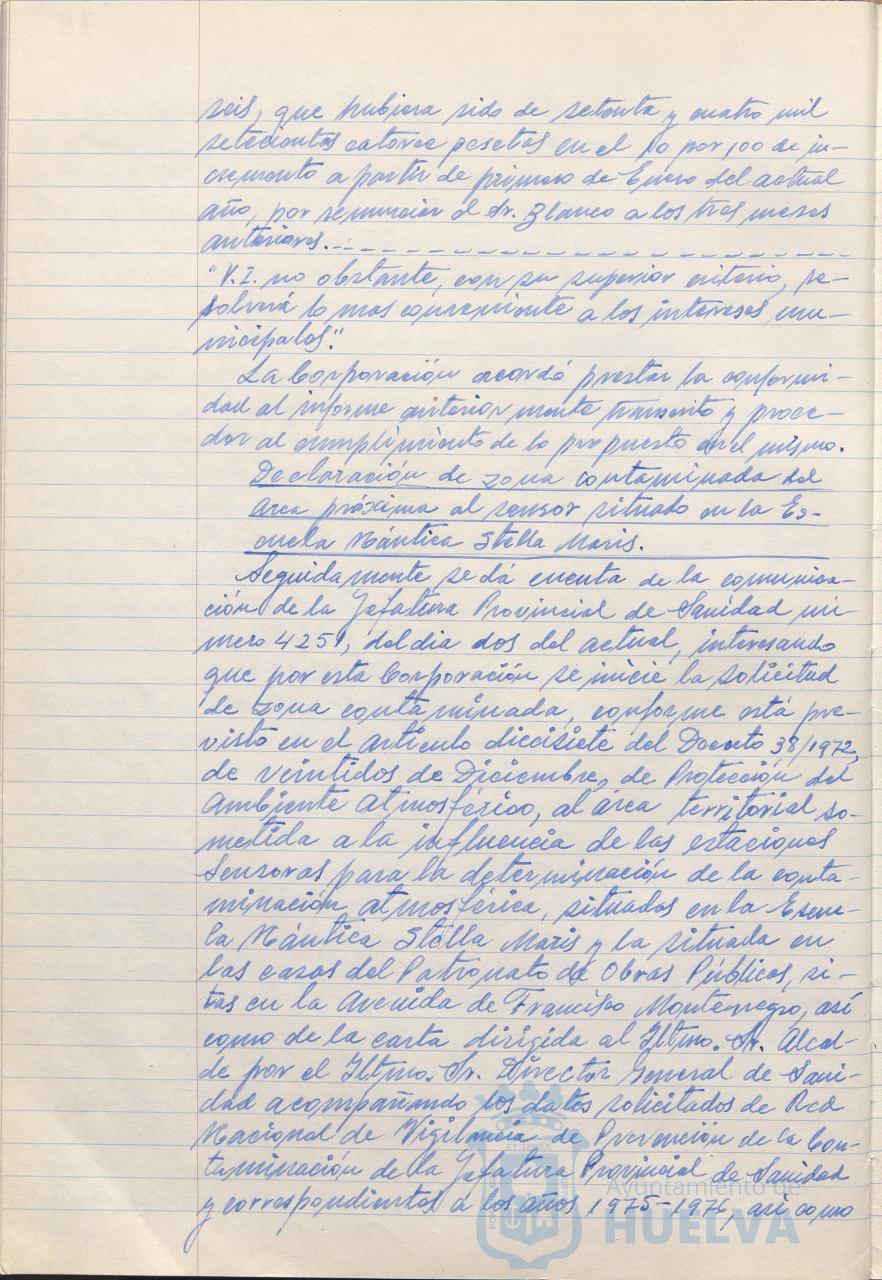 seis, que hubiera sido de setenta y cuatro mil
setecientas catorce pesetas en el 10 por 100 de in-
cremento a partir de primero de Enero del actual
año, por renunciar el Sr. Blanco a los tres meses
anteriores.
"V.I. no obstante, con su superior criterio, re-
solverá lo mas conveniente a los intereses mu-
nicipales".
La Corporación acordó prestar la conformi-
dad al informe anteriormente transcrito y proce-
der al cumplimiento de lo propuesto en el mismo.
Declaración de zona contaminada del
area próxima al sensor situado en la Es-
cuela Náutica Stella Maris.
Seguidamente se dá cuenta de la comunica-
ción de la Jefatura Provincial de Sanidad nú-
mero 4251, del dia dos del actual, interesando
que por esta Corporación se inicie la solicitud
de zona contaminada, conforme está pre-
visto en el artículo diecisiete del Decreto 38/1972,
de veintidos de Diciembre, de Protección del
Ambiente Atmosférico, al área territorial so-
metida a la influencia de las estaciones
sensoras para la determinación de la conta-
minación atmosférica, situadas en la Escue-
la Náutica Stella Maris y la situada en
las casas del Patronato de Obras Públicas, si-
tas en la Avenida de Francisco Montenegro, así
como de la carta dirigida al Iltmo. Sr. Alcal-
de por el Iltmo. Sr. Director General de Sani-
dad acompañando los datos solicitados de Red
Nacional de Vigilancia de Prevención de la Con-
taminación de la Jefatura Provincial de Sanidad
y correspondientes a los años 1975-1976, así como
Ayuntamiento de
HUELVA